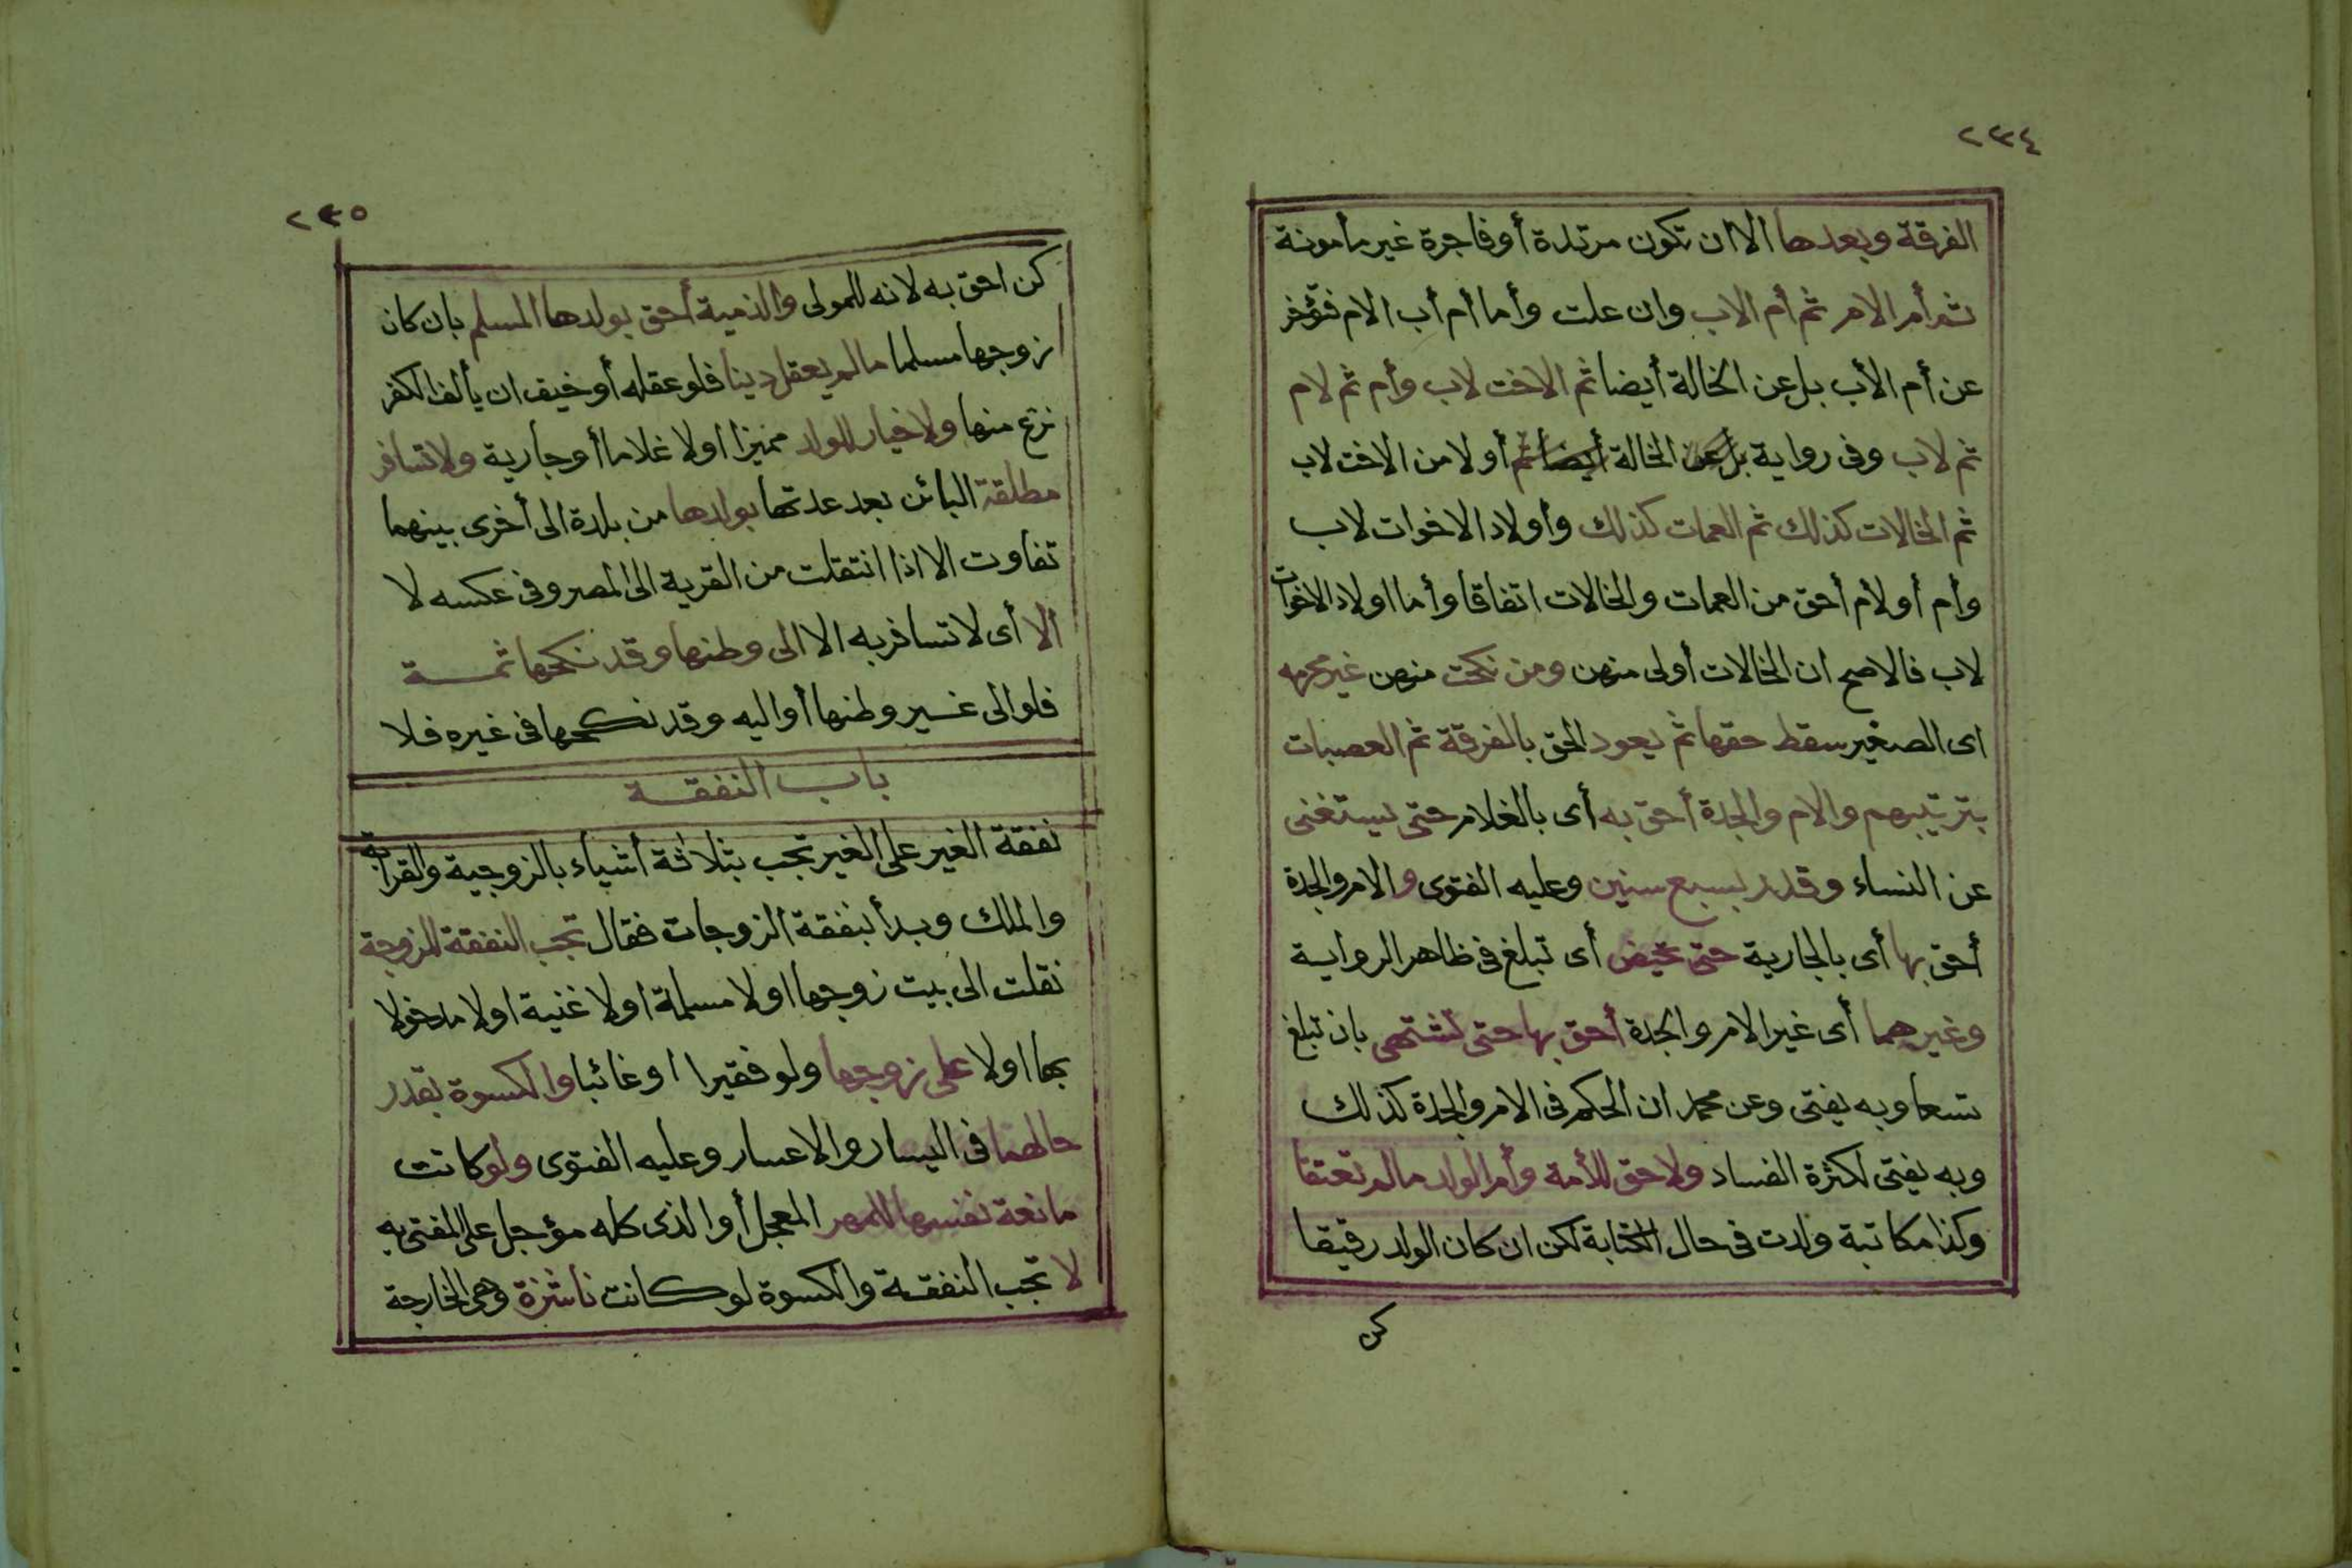 ٢٣٤
الفرقة وبعدها الا ان تكون مرتدة أو فاجرة غير مأمونة
ثم أم الام ثم أم الاب وان علت وأما أم أب الام فتؤخر
عن أم الأب بل عن الخالة أيضا ثم الاخت لاب وأم ثم لام
ثم لاب وفى رواية بل عن الخالة أيضا ثم أولا من الاخت لاب
ثم الخالات كذلك ثم العمات كذلك وأولاد الاخوات لاب
وأم أو لأم أحق من العمات والخالات اتفاقا وأما اولاد الاخوات
لاب فالاصح ان الخالات أولى منهن ومن نكحت منهن غير محرمه
اى الصغير سقط حقها ثم يعود الحق بالفرقة ثم العصبات
بترتيبهم والام والجدة أحق به أى بالغلام حتى يستغنى
عن النساء وقدر بسبع سنين وعليه الفتوى والام والجدة
أحق بها أى بالجارية حتى تحيض أى تبلغ فى ظاهر الرواية
وغيرهما أى غير الام والجدة أحق بها حتى تشتهى بان تبلغ
تسعا وبه يفتى وعن محمد ان الحكم فى الام والجدة كذلك
وبه يفتى لكثرة الفساد ولا حق للأمة وأم الولد مالم تعتقا
وكذا مكاتبة ولدت فى حال الكتابة لكن ان كان الولد رقيقا
كن
٢٣٥
كن احق به لانه للمولى والذمية أحق بولدها المسلم بان كان
زوجها مسلما مالم يعقل دينا فلو عقله أو خيف ان يألف الكفر
نزع منها ولا خيار للولد مميزا اولا غلاما أو جارية ولا تسافر
مطلقة البائن بعد عدتها بولدها من بلدة الى أخرى بينهما
تفاوت الا اذا انتقلت من القرية الى المصر وفى عكسه لا
الا أى لا تسافر به الا الى وطنها وقد نكحها ثمة
فلو الى غير وطنها أو اليه وقد نكحها فى غيره فلا
باب النفقة
نفقة الغير على الغير تجب بثلاثة أشياء بالزوجية والقرابة
والملك وبدأ بنفقة الزوجات فقال تجب النفقة للزوجة
نقلت الى بيت زوجها اولا مسلمة اولا غنية اولا مدخولا
بها اولا على زوجها ولو فقيرا او غائبا والكسوة بقدر
حالهما فى اليسار والاعسار وعليه الفتوى ولو كانت
مانعة نفسها للمهر المعجل أو الذى كله مؤجل على المفتى به
لا تجب النفقة والكسوة لو كانت ناشزة وهى الخارجة